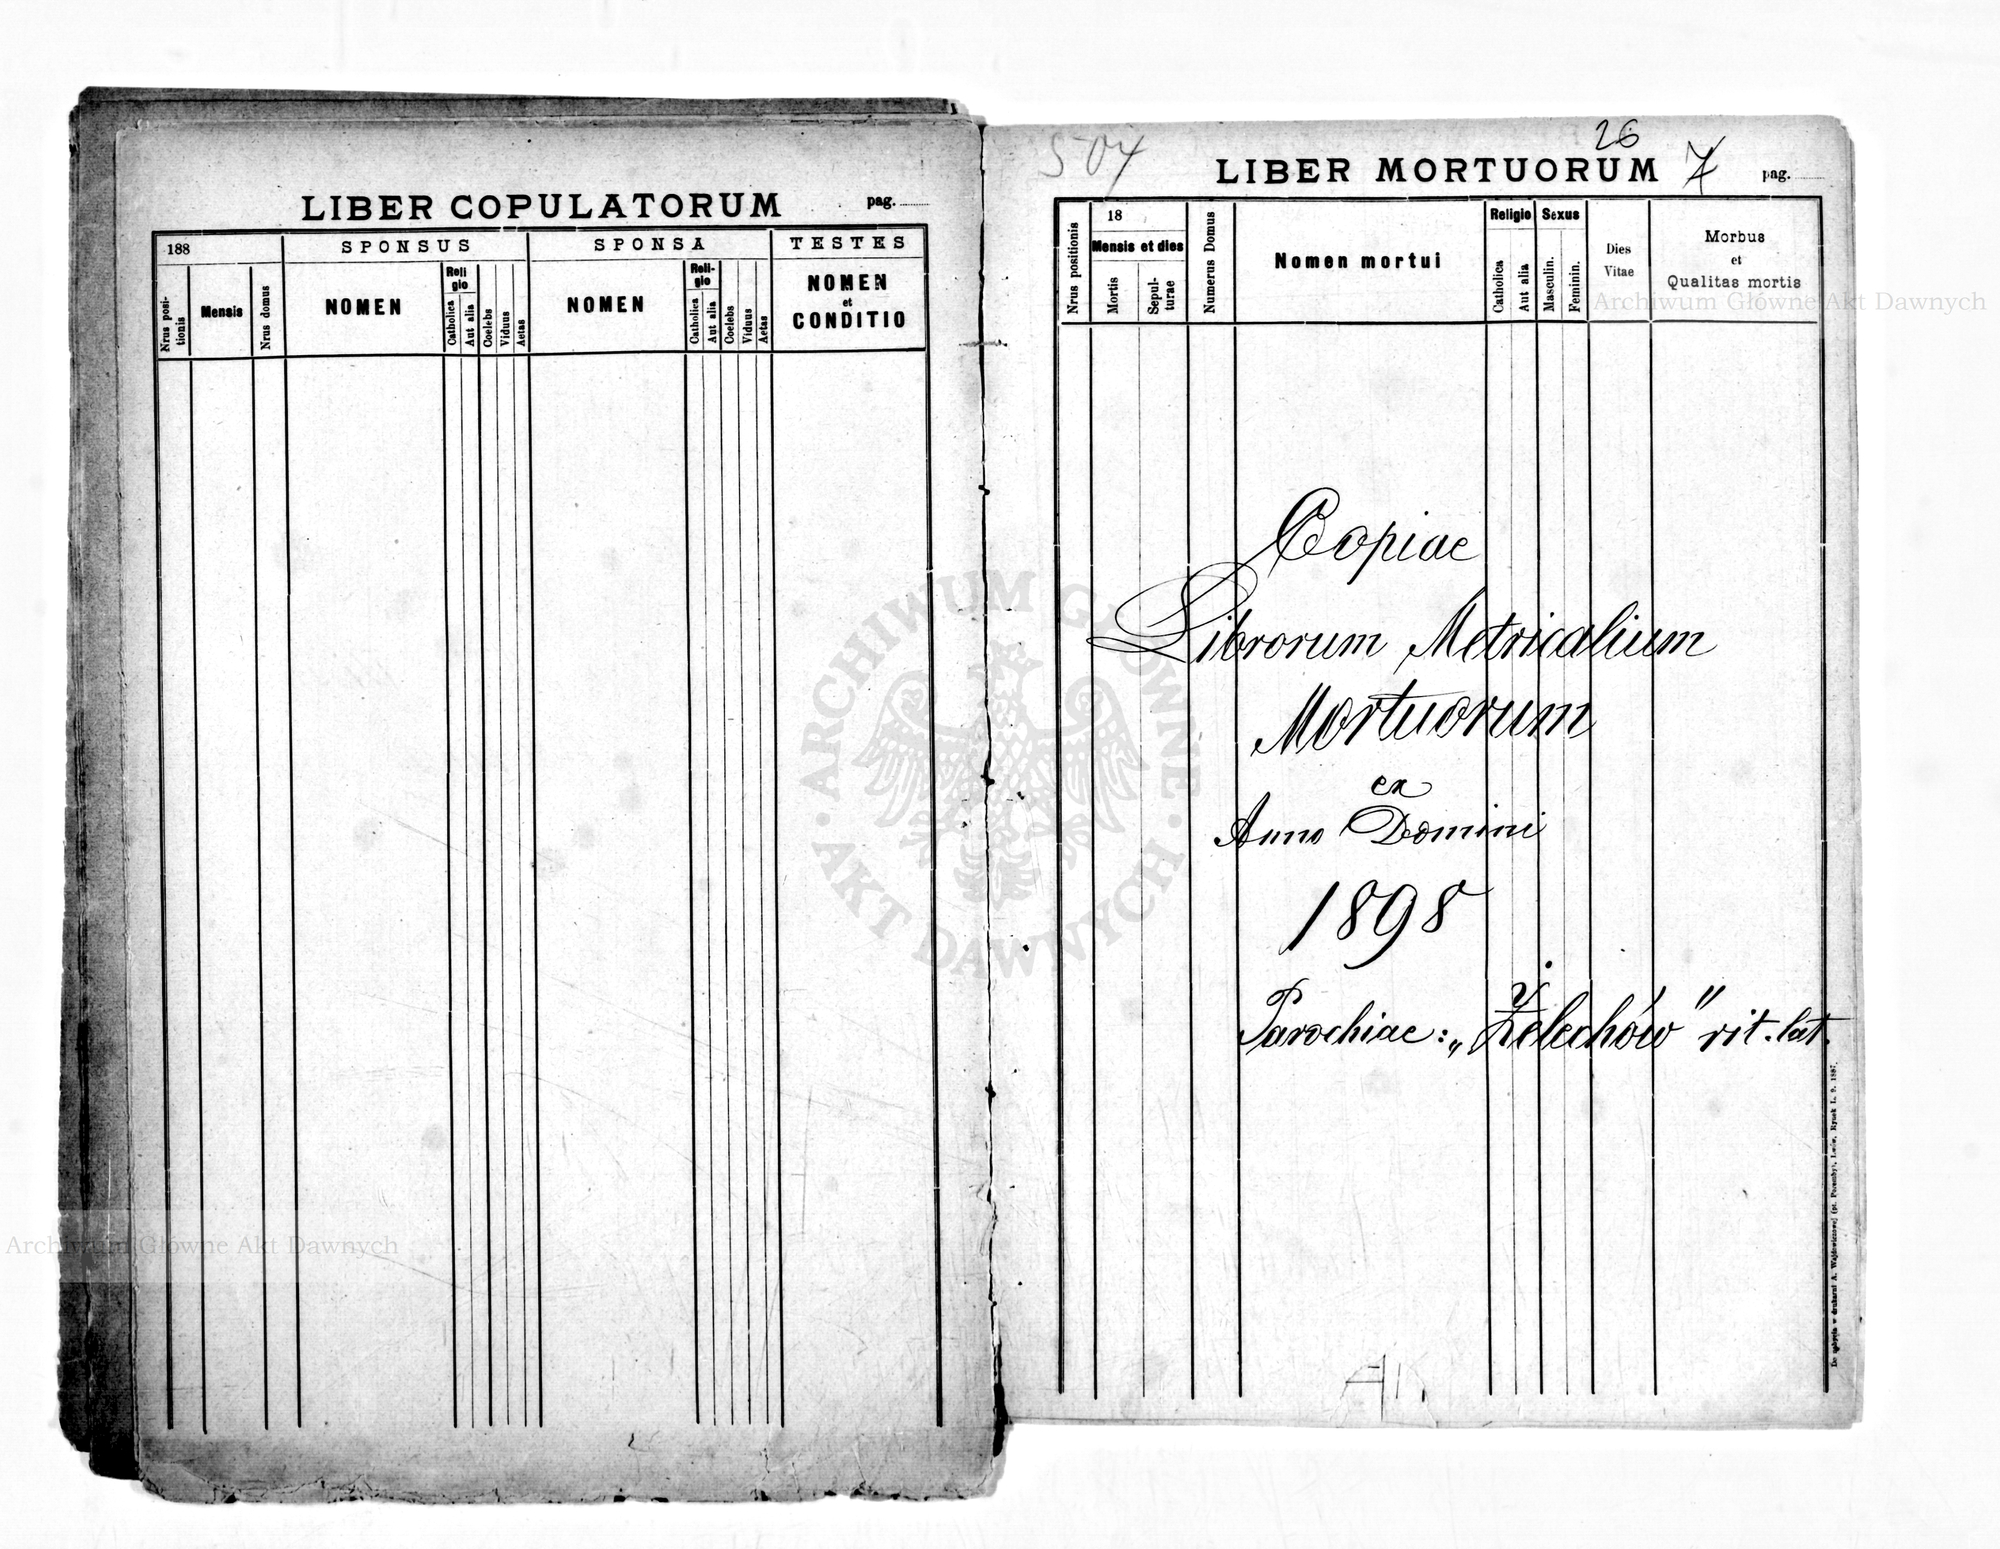 LIBER COPULATORUM pag.
188 SPONSUS SPONSA TESTES
Nrus positionis
Mensis
Nrus domus
NOMEN
Religio
Catholica
Aut alia
Coelebs
Viduus
Aetas
NOMEN
Religio
Catholica
Aut alia
Coelebs
Viduus
Aetas
NOMEN
et
CONDITIO
504
26
LIBER MORTUORUM 7 pag.
Nrus positionis
18
Mensis et dies
Mortis
Sepulturae
Numerus Domus
Nomen mortui
Religio
Catholica
Aut alia
Sexus
Masculin.
Feminin.
Dies
Vitae
Morbus
et
Qualitas mortis
Copiae
Librorum Metricalium
Mortuorum
ex
Anno Domini
1898
Parochiae: „Żelechów" rit. lat.
AK
De nabycia w drukarni A. Wajdowiczowej (pt. Poremby), Lwów, Rynek L. 9. 1887.
Archiwum Główne Akt Dawnych
ARCHIWUM GŁÓWNE
AKT DAWNYCH
Archiwum Główne Akt Dawnych